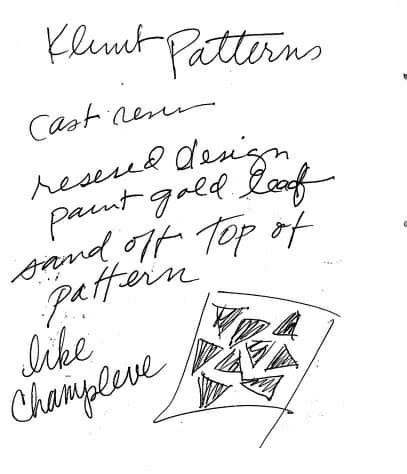 Klimt Patterns
Cast resin
resesed design
paint gold leaf
sand off Top of
pattern
like
Champleve